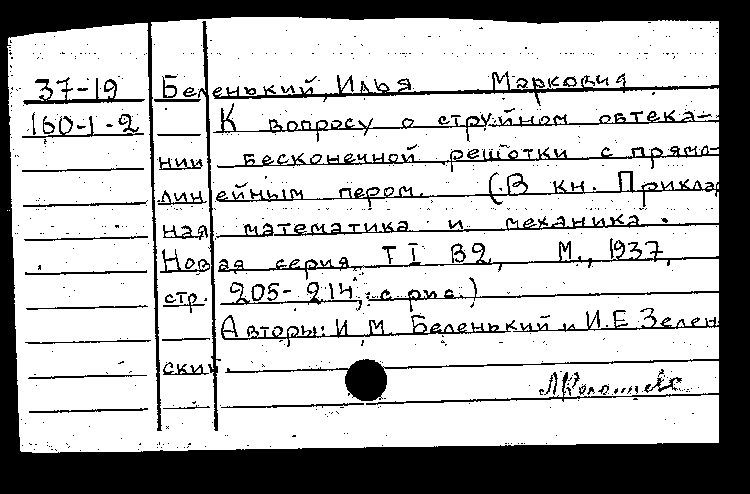 37-19 Беленький, Илья Маркович
160-1-2 К вопросу о струйном обтека-
нии бесконечной решотки с прямо-
линейным пером. (В кн. Приклад
ная математика и механика.
Новая серия, Т I В2, М., 1937,
стр. 205-214, с рис.)
Авторы: И.М. Беленький и И.Е Зелен
ский.